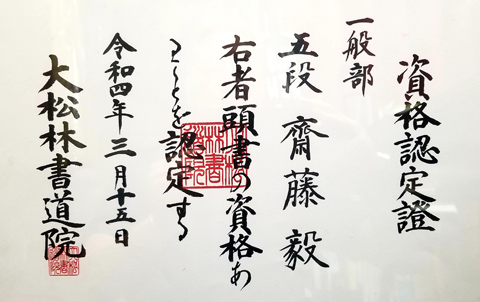 資格認定證
一般部
五段 齋藤毅
右者頭書の資格あ
ることを認定する
令和四年三月十五日
大松林書道院